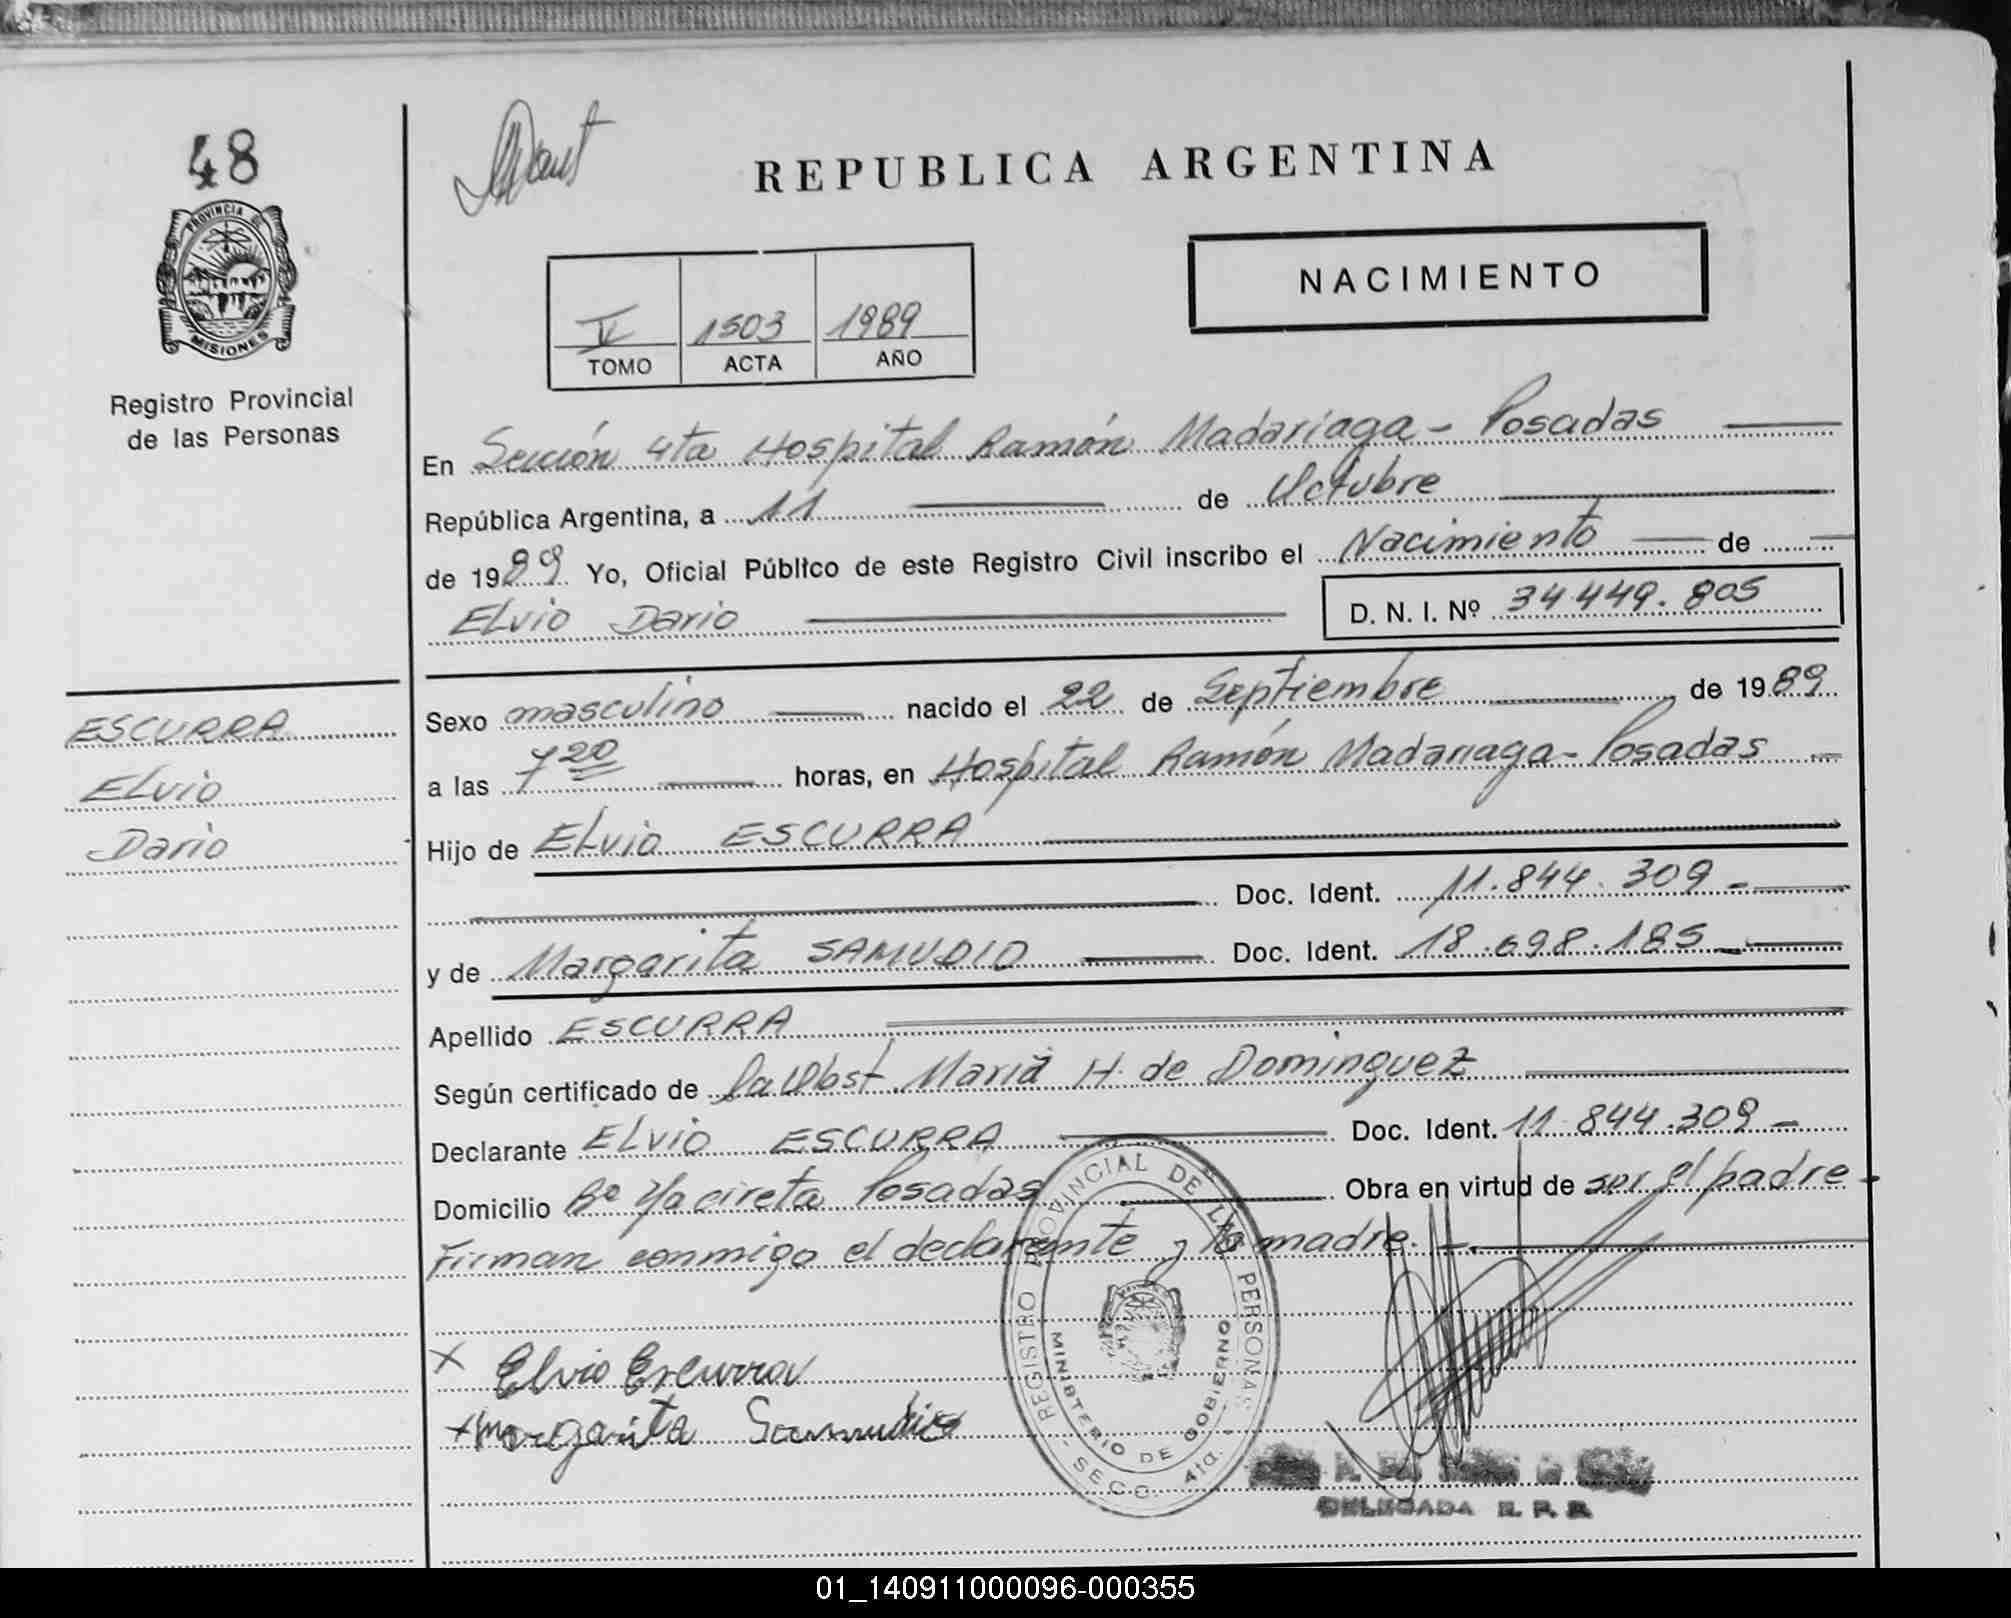 48
PROVINCIA DE
MISIONES
Registro Provincial
de las Personas
REPUBLICA ARGENTINA
NACIMIENTO
V 1503 1989
TOMO ACTA AÑO
En Sección 4ta Hospital Ramón Madariaga - Posadas
República Argentina, a 11 de Octubre
de 1989 Yo, Oficial Público de este Registro Civil inscribo el Nacimiento de
Elvio Dario D. N. I. Nº 34449.805
Sexo masculino nacido el 22 de Septiembre de 1989
a las 7 20 horas, en Hospital Ramón Madariaga - Posadas
Hijo de Elvio ESCURRA
Doc. Ident. 11.844.309 -
y de Margarita SAMUDIO Doc. Ident. 18.698.185 -
Apellido ESCURRA
Según certificado de la Obst Maria H. de Dominguez
Declarante Elvio ESCURRA Doc. Ident. 11.844.309 -
Domicilio Bº Yacireta Posadas Obra en virtud de ser el padre -
Firman conmigo el declarante y la madre. -
x Elvio Escurra
x Margarita Samudio
ESCURRA
Elvio
Dario
REGISTRO PROVINCIAL DE LAS PERSONAS
MINISTERIO DE GOBIERNO
- SECC. 4ta. -
DELEGADA R. P. P.
01_140911000096-000355